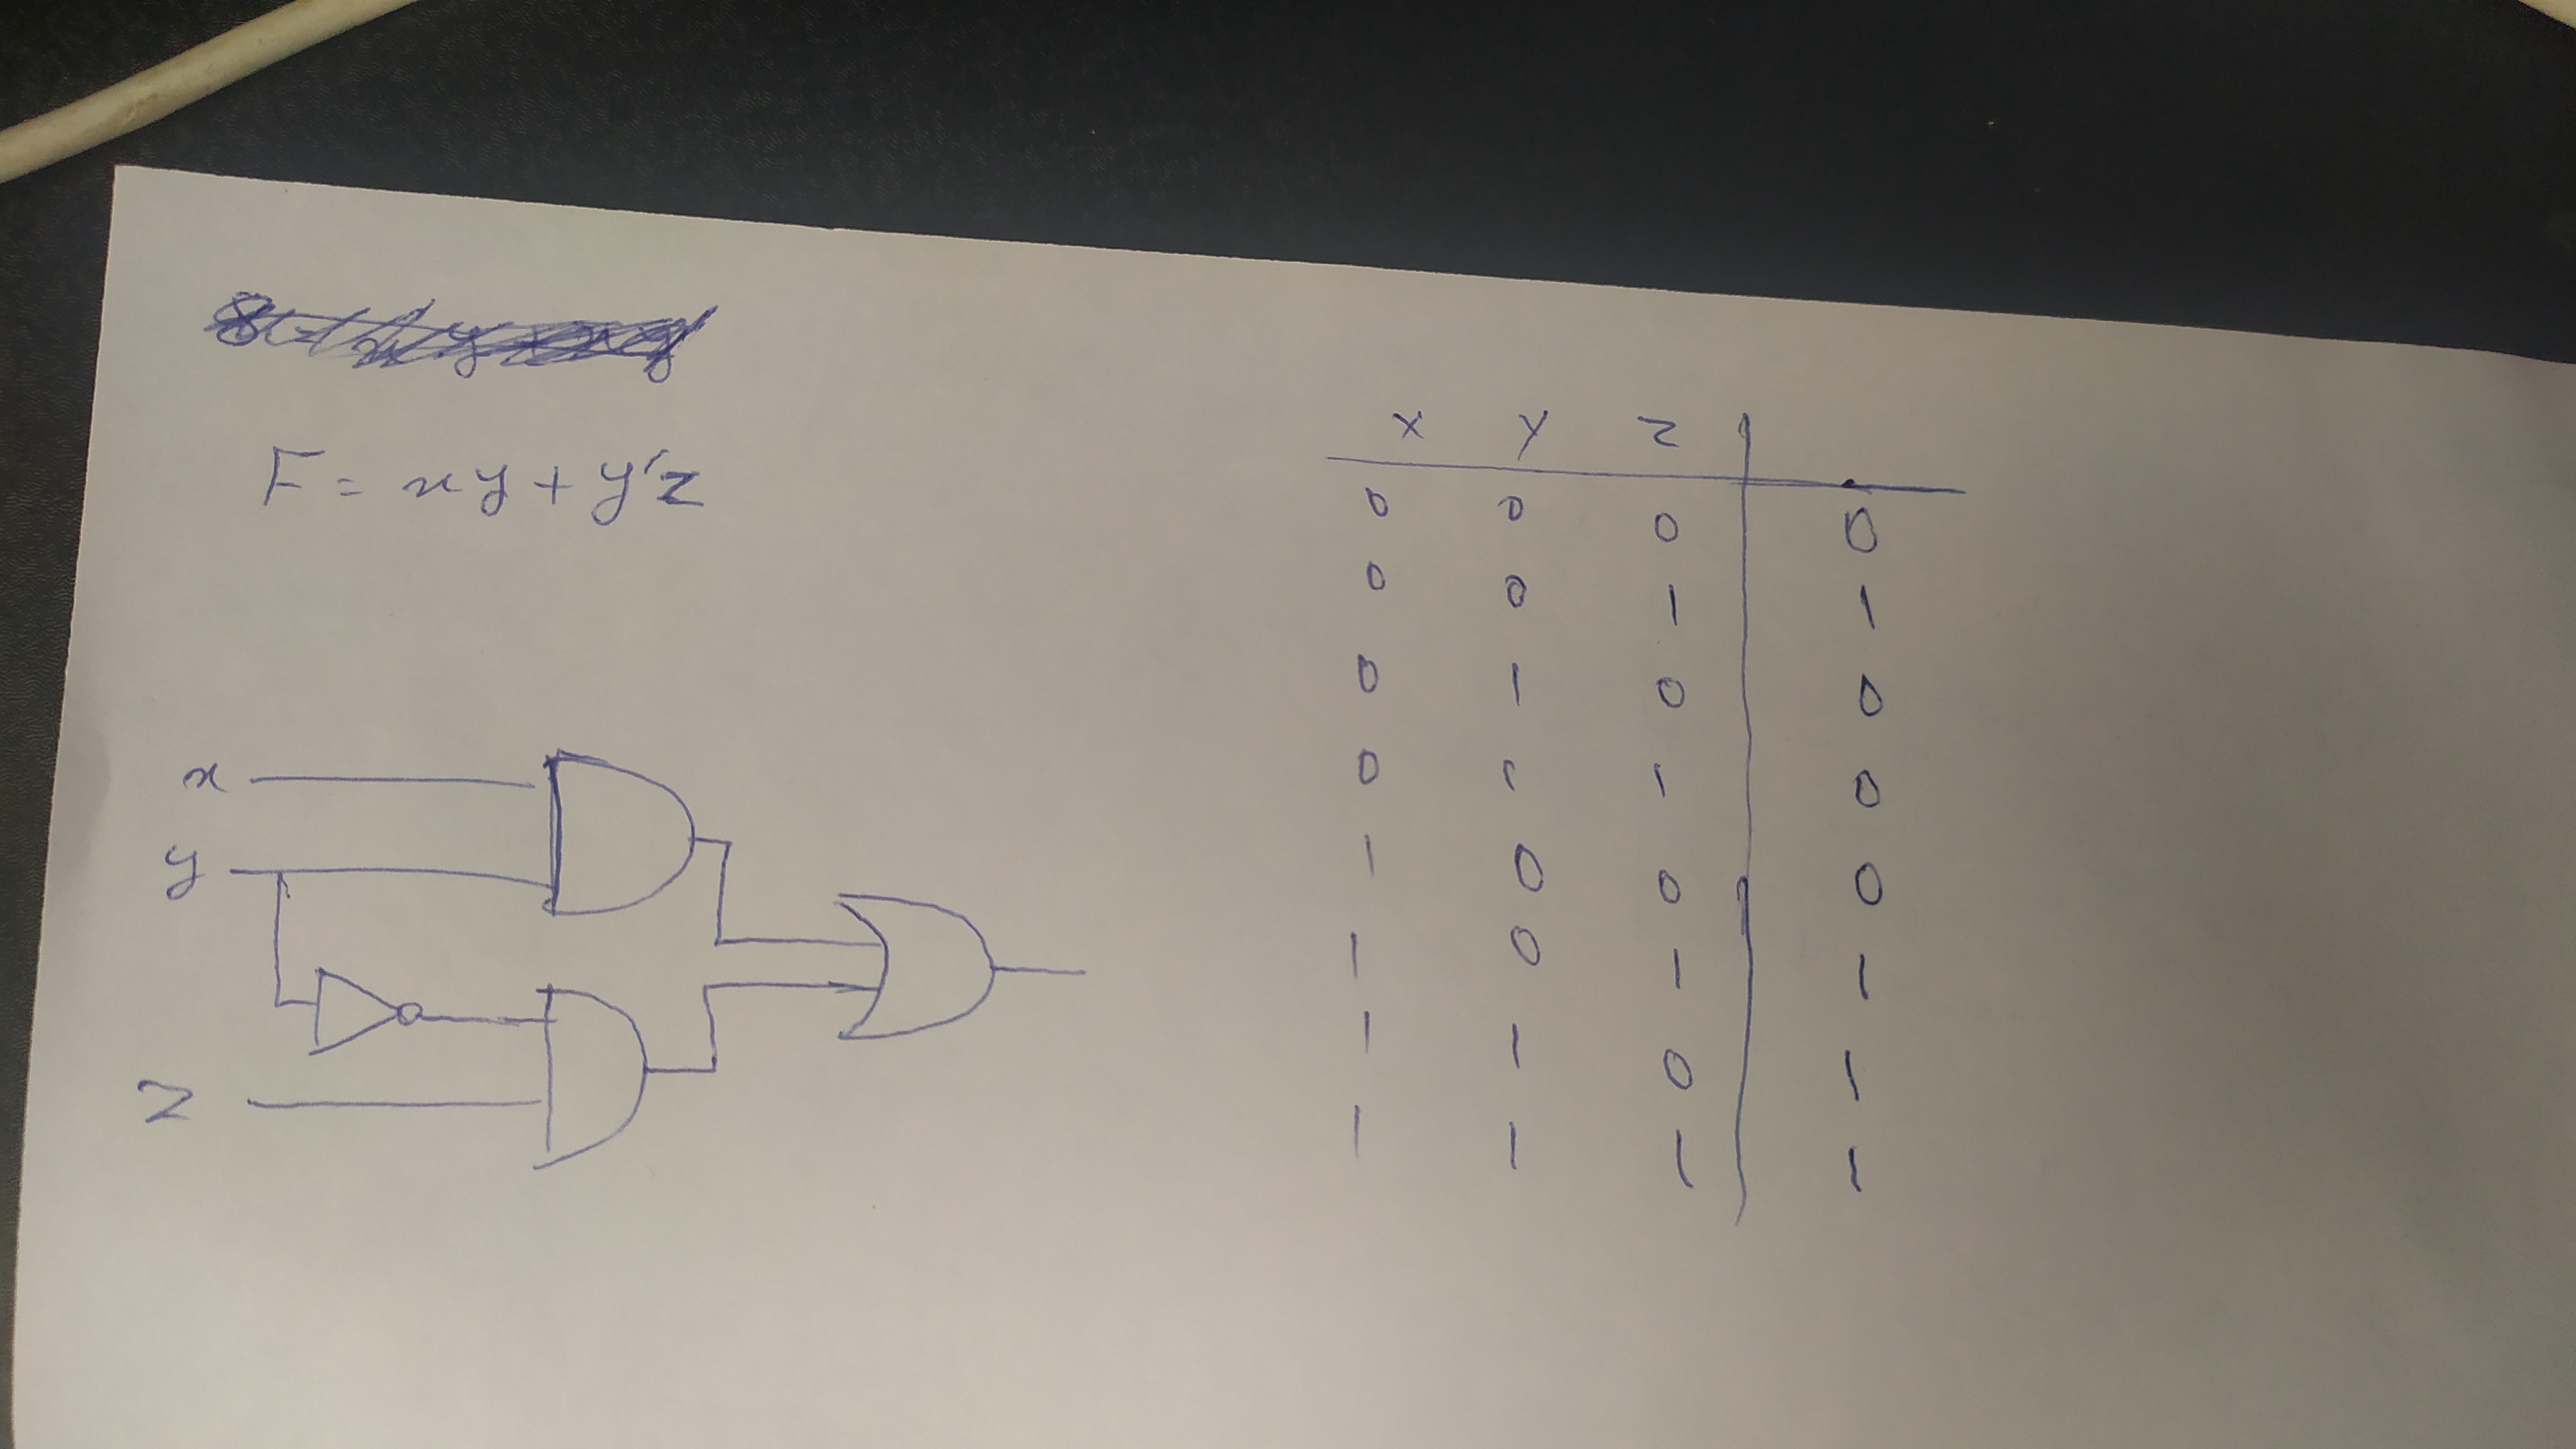 F = xy + y'z
x y z
0 0 0 0
0 0 1 1
0 1 0 0
0 1 1 0
1 0 0 0
1 0 1 1
1 1 0 1
1 1 1 1
x
y
z